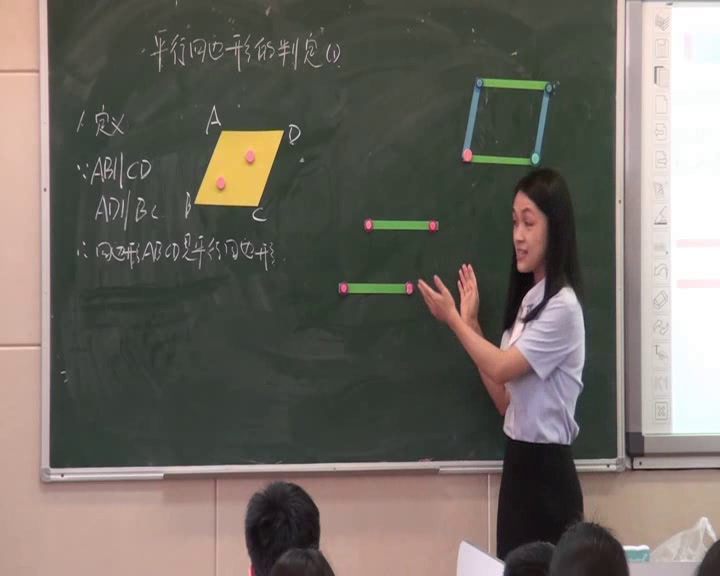 平行四边形的判定(1)
1 定义
∵AB∥CD
AD∥BC
∴四边形ABCD是平行四边形.
A
D
B
C